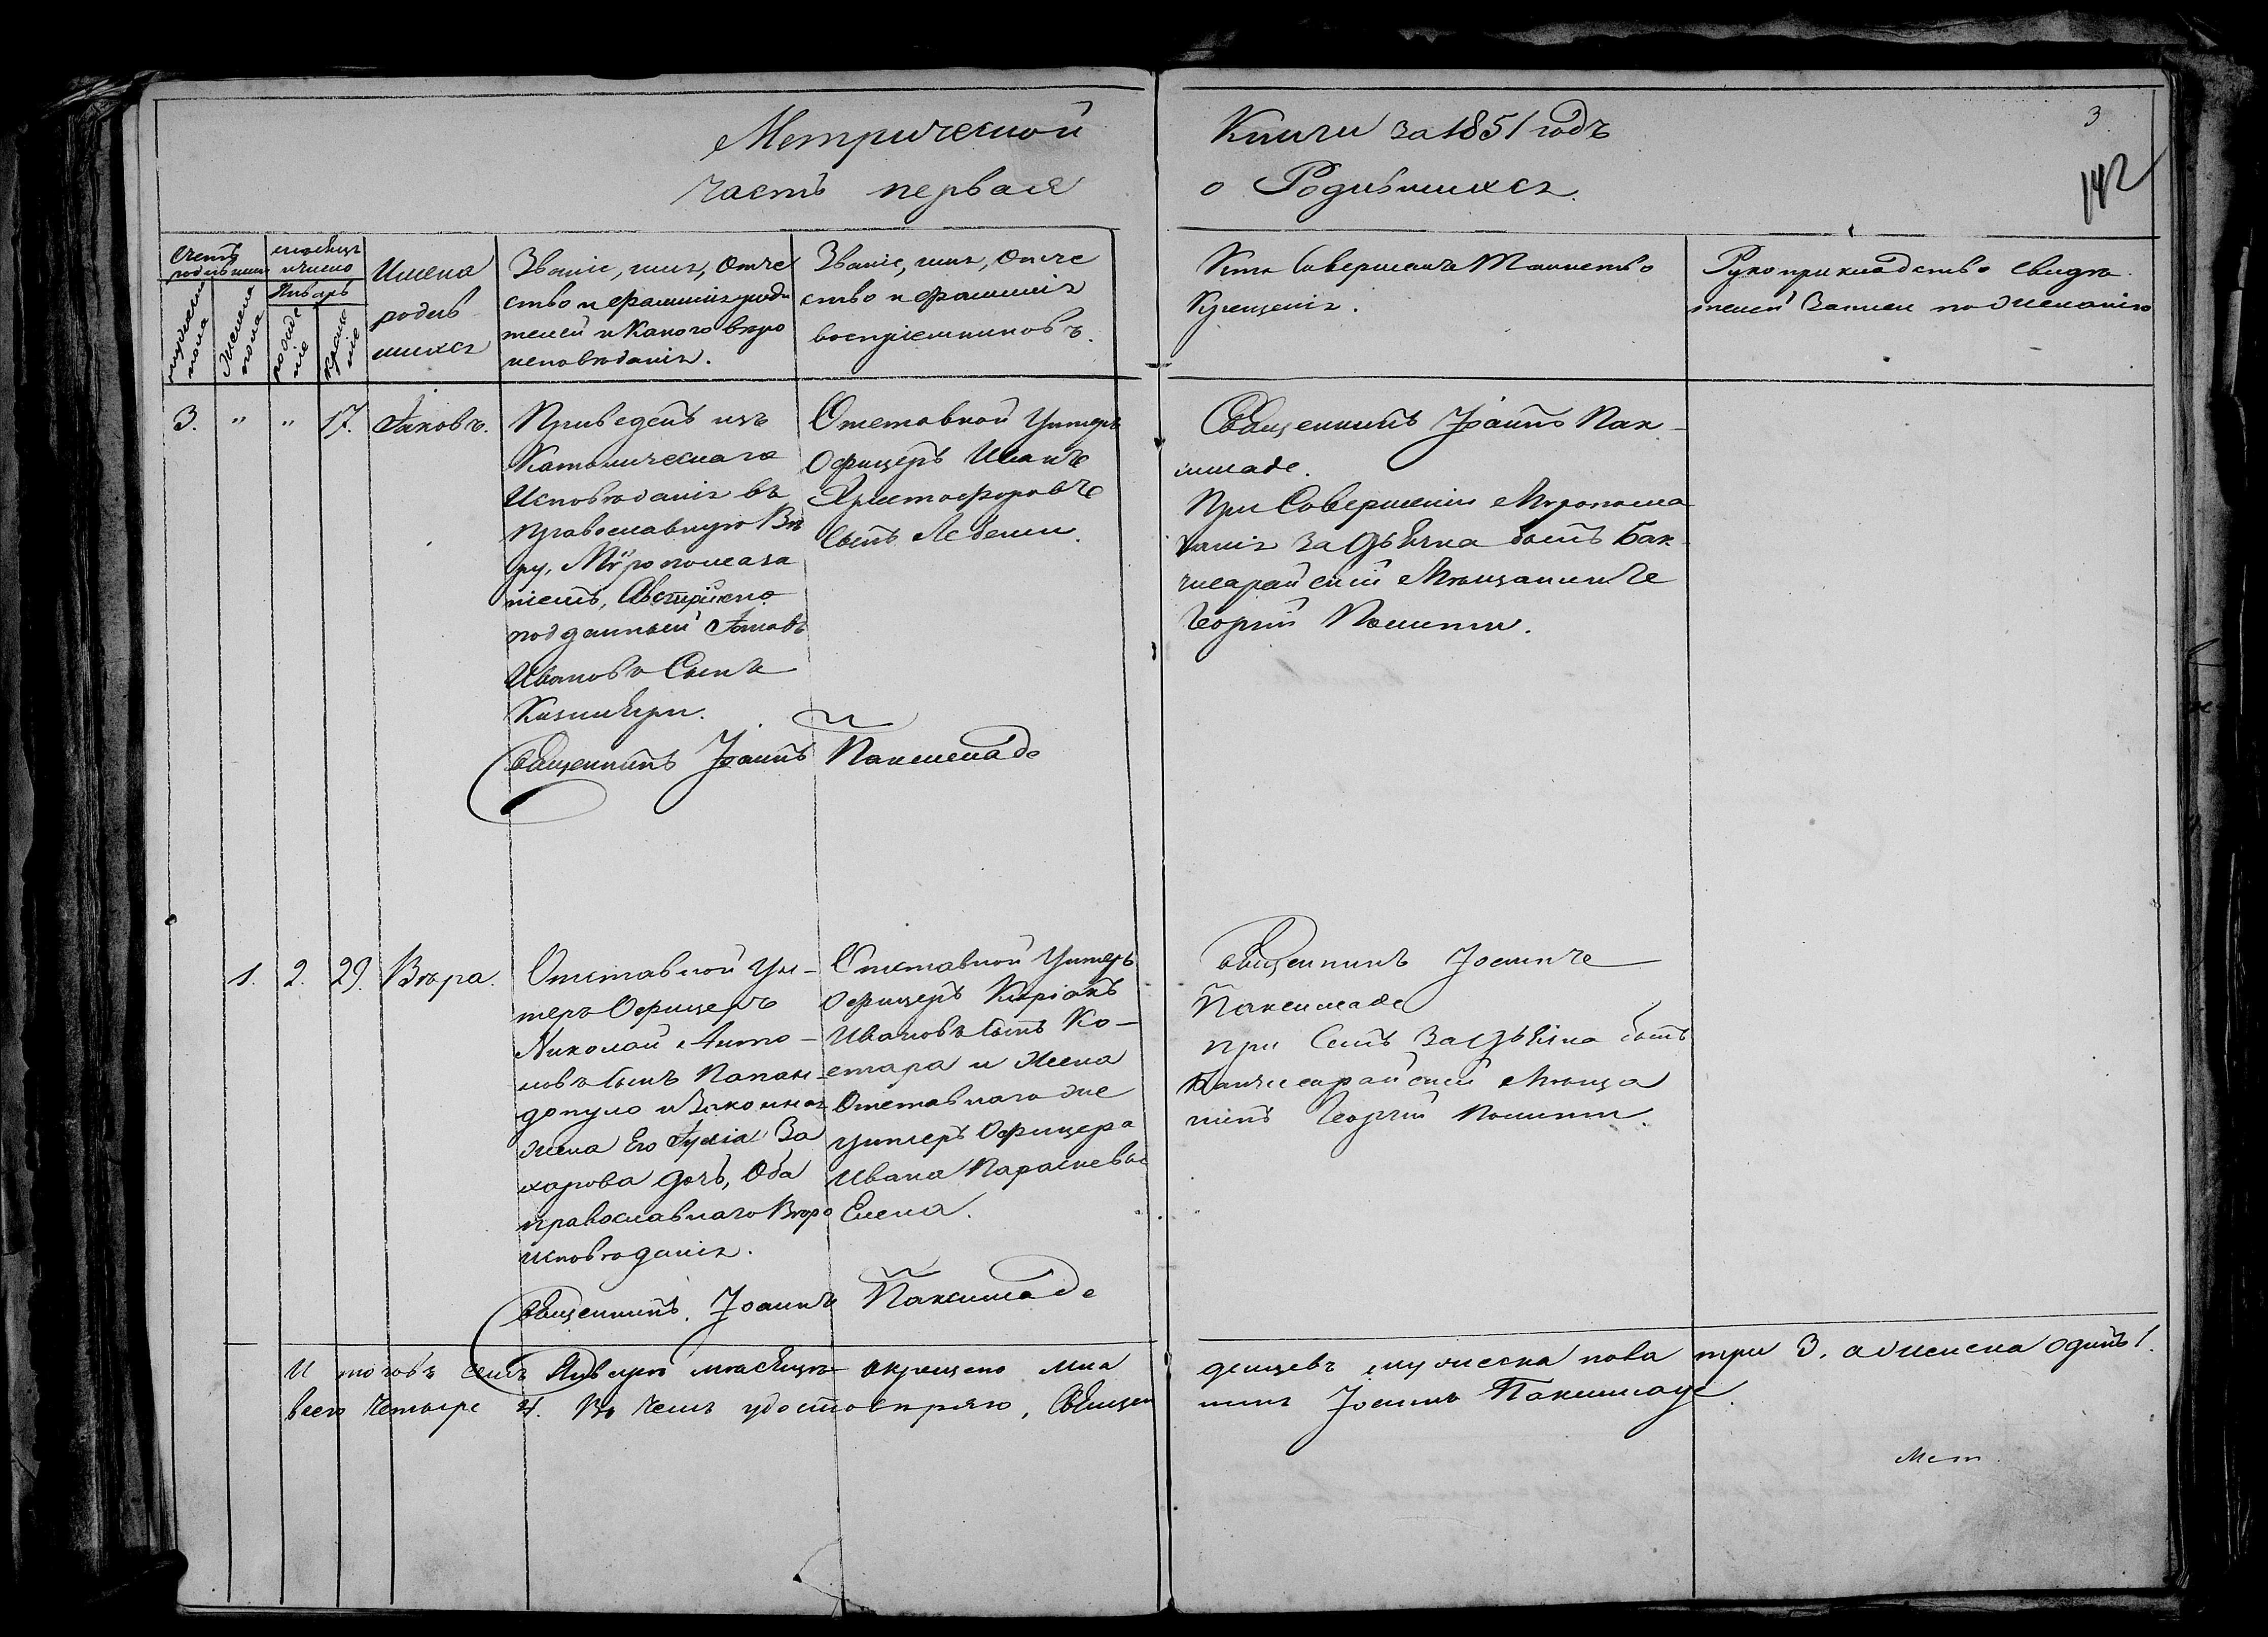 Метрической
Книги за 1851 годъ
часть первая
о Родившихся.
3
142
Счетъ родившихся
мужеска пола
Женска пола
Месяцъ и число
Январь
рожденіе
крещеніе
Имена
родив
шихся
Званіе, имя, Отче
ство и фамилія роди
телей и Какого веро
исповѣданія.
Званіе, имя, Отче
ство и Фамилія
воспріемниковъ.
Кто Совершалъ Таинство
Крещенія.
Рукоприкладство свидѣ
телей Записи по Желанію
3. " " 17. Іаковъ.
Приведенъ изъ
Католическаго
Исповѣданія въ
православную Вѣ
ру, Мѵропомаза
ніемъ, Австрійско
подданный Іаковъ
Ивановъ Сынъ
Отставной Унтеръ
Офицеръ Иванъ
Христофоровъ
Сынъ
Священникъ Іоаннъ Пак-
симаде.
При Совершеніи Мѵропома
занія за Дьячка былъ Бак
чисарайскій Мѣщанинъ
Георгій
Священникъ Іоаннъ Паксимаде
1. 2. 29. Вѣра.
Отставной Ун-
теръ Офицеръ
Николай Анто-
новъ сынъ Папан-
допуло и Законная
жена Его Іулія За
харова дочь, Оба
православнаго Вѣро
исповѣданія.
Отставной Унтеръ
Офицеръ Киріакъ
Ивановъ сынъ Ко-
стара и Жена
Отставнаго же
унтеръ Офицера
Ивана Параскева
Елена.
Священникъ Іоаннъ
Паксимаде
при Семъ За Дьячка былъ
Бакчисарайскій Мѣща
нинъ Георгій
Священникъ Іоаннъ Паксимаде
И того въ семъ Январѣ мѣсяцѣ окрещено мла
денцевъ мужеска пола три 3. а женска одинъ 1.
всего Четыре 4. Въ Чемъ удостовѣряю, Священ
никъ Іоаннъ Паксимаде.
Мет.